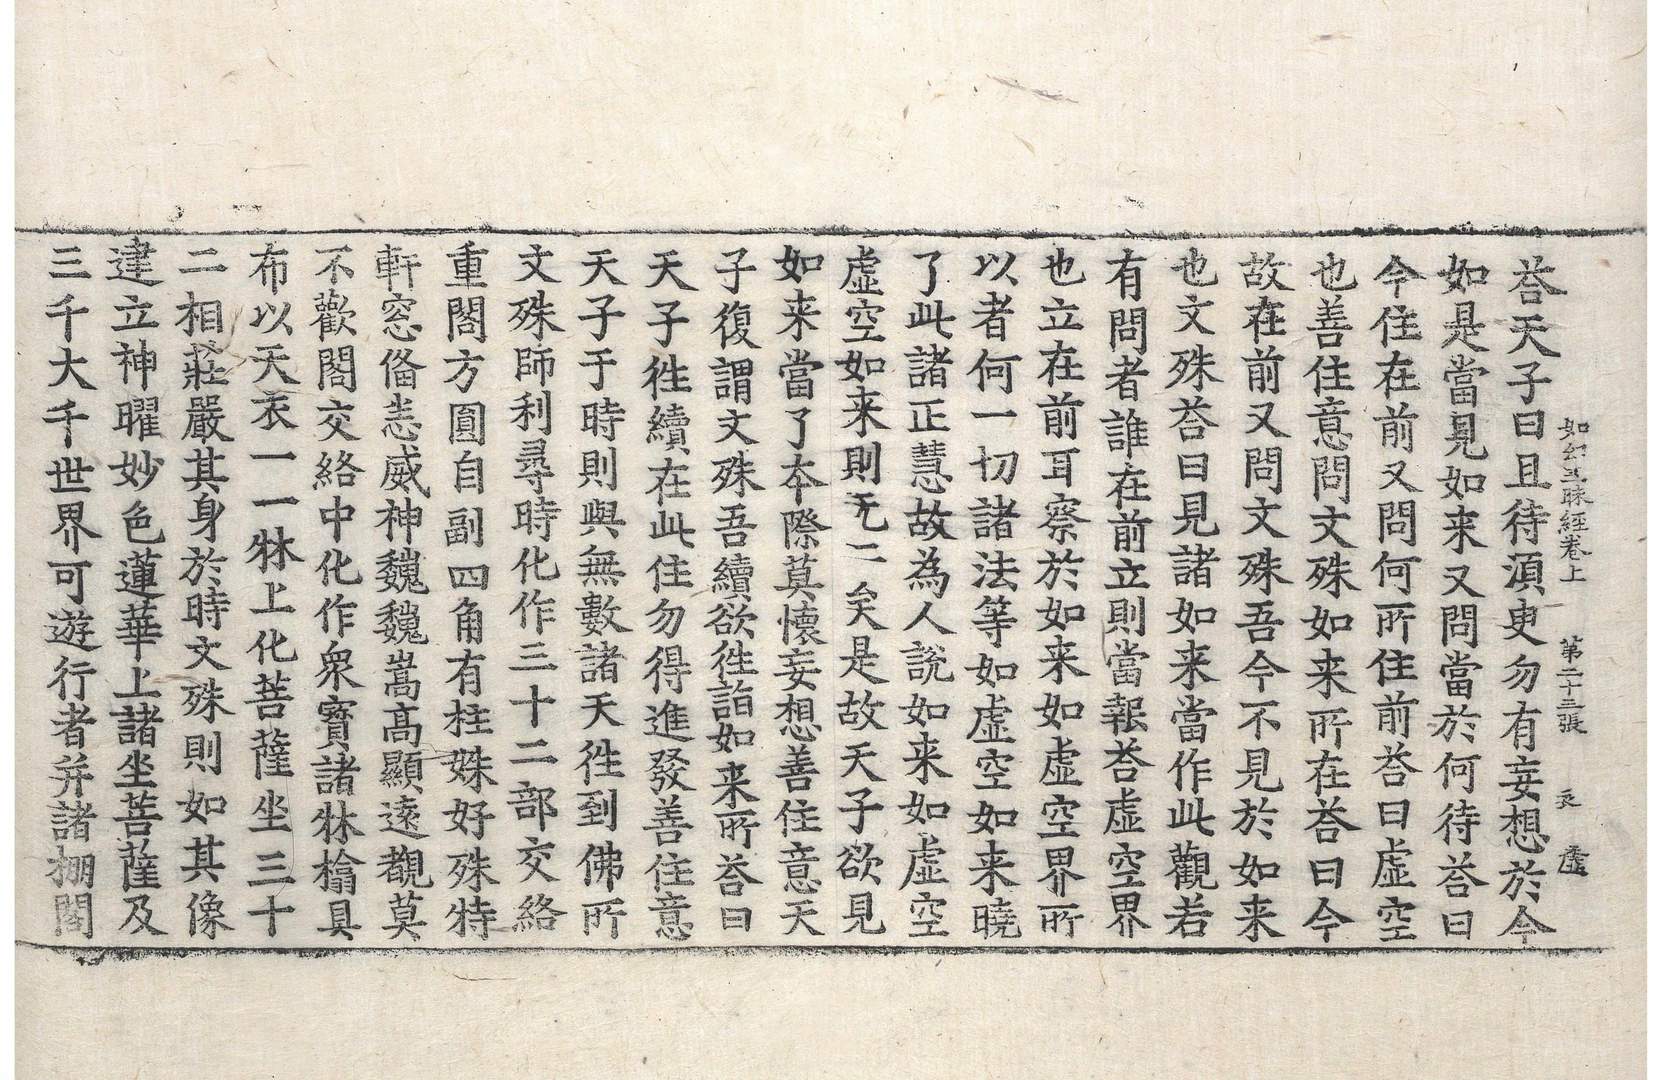 如幻三昧經卷上 第二十三張
荅天子曰且待湏臾勿有妄想於今
如是當見如来又問當於何待荅曰
今住在前又問何所住前荅曰虛空
也善住意問文殊如来所在荅曰今
故在前又問文殊吾今不見於如来
也文殊荅曰見諸如来當作此觀若
有問者誰在前立則當報荅虛空界
也立在前耳察於如来如虛空界所
以者何一切諸法等如虛空如来曉
了此諸正慧故為人說如来如虛空
虛空如来則无二矣是故天子欲見
如来當了本際莫懷妄想善住意天
子復謂文殊吾續欲徃詣如来所荅曰
天子徃續在此住勿得進發善住意
天子于時則與無數諸天徃到佛所
文殊師利尋時化作三十二部交絡
重閣方圓自副四角有柱姝好殊特
軒窓俻恙威神巍巍嵩高顯遠覩莫
不歡閣交絡中化作衆寶諸牀榻具
布以天衣一一牀上化菩薩坐三十
二相莊嚴其身於時文殊則如其像
建立神曜妙色蓮華上諸坐菩薩及
三千大千世界可遊行者并諸棚閣